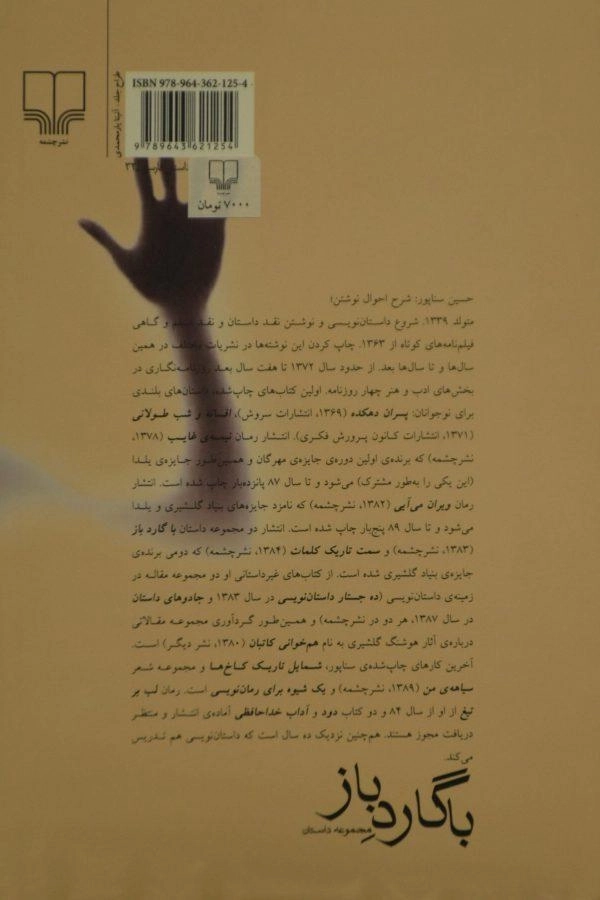 نشرچشمه
طراح جلد: آتینا یارمحمدی
ISBN 978-964-362-125-4
9 789643 621254
۷۰۰۰ تومان
حسین سناپور: شرح احوال نوشتن!
متولد ۱۳۳۹. شروع داستان‌نویسی و نوشتن نقد داستان و نقد فیلم و گاهی
فیلم‌نامه‌های کوتاه از ۱۳۶۳. چاپ کردن این نوشته‌ها در نشریات مختلف در همین
سال‌ها و تا سال‌ها بعد. از حدود سال ۱۳۷۲ تا هفت سال بعد روزنامه‌نگاری در
بخش‌های ادب و هنر چهار روزنامه. اولین کتاب‌های چاپ‌شده، داستان‌های بلندی
برای نوجوانان: پسران دهکده (۱۳۶۹، انتشارات سروش)، افسانه و شب طولانی
(۱۳۷۱، انتشارات کانون پرورش فکری). انتشار رمان نیمه‌ی غایب (۱۳۷۸،
نشرچشمه) که برنده‌ی اولین دوره‌ی جایزه‌ی مهرگان و همین‌طور جایزه‌ی یلدا
(این یکی را به‌طور مشترک) می‌شود و تا سال ۸۷ پانزده‌بار چاپ شده است. انتشار
رمان ویران می‌آیی (۱۳۸۲، نشرچشمه) که نامزد جایزه‌های بنیاد گلشیری و یلدا
می‌شود و تا سال ۸۹ پنج‌بار چاپ شده است. انتشار دو مجموعه داستان با گارد باز
(۱۳۸۳، نشرچشمه) و سمت تاریک کلمات (۱۳۸۴، نشرچشمه) که دومی برنده‌ی
جایزه‌ی بنیاد گلشیری شده است. از کتاب‌های غیرداستانی او دو مجموعه مقاله در
زمینه‌ی داستان‌نویسی (ده جستار داستان‌نویسی در سال ۱۳۸۳ و جادوهای داستان
در سال ۱۳۸۷، هر دو در نشرچشمه) و همین‌طور گردآوری مجموعه مقالاتی
درباره‌ی آثار هوشنگ گلشیری به نام هم‌خوانی کاتبان (۱۳۸۰، نشر دیگر) است.
آخرین کارهای چاپ‌شده‌ی سناپور، شمایل تاریک کاخ‌ها و مجموعه شعر
سیاهه‌ی من (۱۳۸۹، نشرچشمه) و یک شیوه برای رمان‌نویسی است. رمان لب بر
تیغ از او از سال ۸۴ و دو کتاب دود و آداب خداحافظی آماده‌ی انتشار و منتظر
دریافت مجوز هستند. هم‌چنین نزدیک ده سال است که داستان‌نویسی هم تدریس
می‌کند.
با گاردِ باز
مجموعه داستان